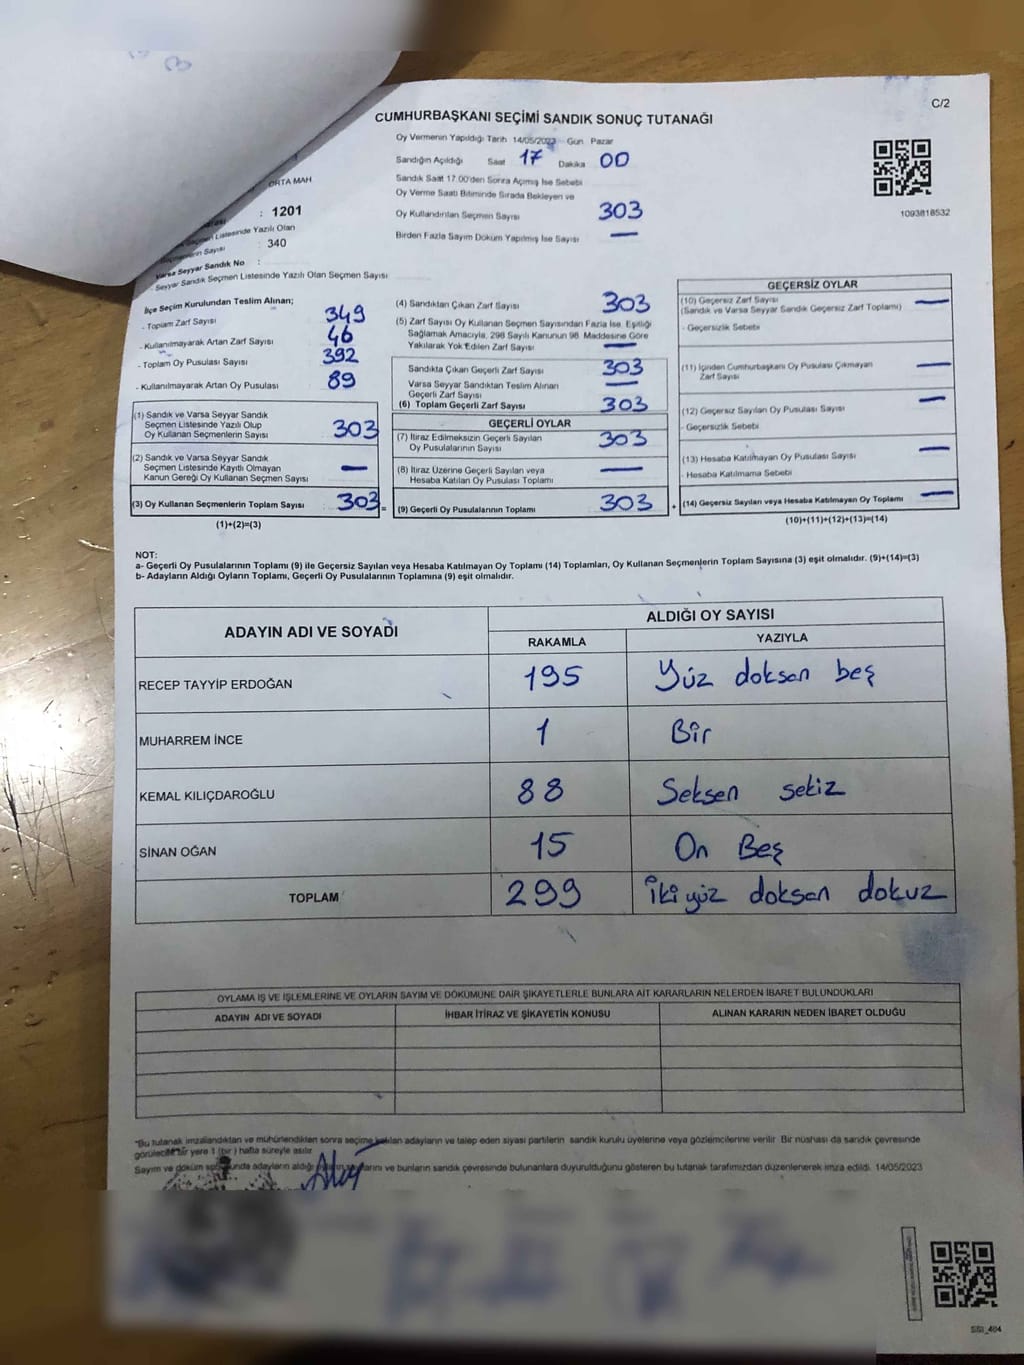 C/2
CUMHURBAŞKANI SEÇİMİ SANDIK SONUÇ TUTANAĞI
Oy Vermenin Yapıldığı Tarih 14/05/2023 Gün Pazar
Sandığın Açıldığı Saat 17 Dakika 00
Sandık Saat 17.00'den Sonra Açmış İse Sebebi
Oy Verme Saati Bitiminde Sırada Bekleyen ve
Oy Kullandırılan Seçmen Sayısı 303
Birden Fazla Sayım Döküm Yapılmış İse Sayısı —
1093818532
ORTA MAH
: 1201
Seçmen Listesinde Yazılı Olan
Seçmenlerin Sayısı : 340
Varsa Seyyar Sandık No :
Seyyar Sandık Seçmen Listesinde Yazılı Olan Seçmen Sayısı
İlçe Seçim Kurulundan Teslim Alınan;
- Toplam Zarf Sayısı 349
- Kullanılmayarak Artan Zarf Sayısı 46
- Toplam Oy Pusulası Sayısı 392
- Kullanılmayarak Artan Oy Pusulası 89
(1) Sandık ve Varsa Seyyar Sandık
Seçmen Listesinde Yazılı Olup
Oy Kullanan Seçmenlerin Sayısı 303
(2) Sandık ve Varsa Seyyar Sandık
Seçmen Listesinde Kayıtlı Olmayan
Kanun Gereği Oy Kullanan Seçmen Sayısı —
(3) Oy Kullanan Seçmenlerin Toplam Sayısı 303 =
(1)+(2)=(3)
(4) Sandıktan Çıkan Zarf Sayısı 303
(5) Zarf Sayısı Oy Kullanan Seçmen Sayısından Fazla İse, Eşitliği
Sağlamak Amacıyla, 298 Sayılı Kanunun 98. Maddesine Göre
Yakılarak Yok Edilen Zarf Sayısı —
Sandıkta Çıkan Geçerli Zarf Sayısı 303
Varsa Seyyar Sandıktan Teslim Alınan
Geçerli Zarf Sayısı —
(6) Toplam Geçerli Zarf Sayısı 303
GEÇERLİ OYLAR
(7) İtiraz Edilmeksizin Geçerli Sayılan
Oy Pusulalarının Sayısı 303
(8) İtiraz Üzerine Geçerli Sayılan veya
Hesaba Katılan Oy Pusulası Toplamı —
(9) Geçerli Oy Pusulalarının Toplamı 303 +
GEÇERSİZ OYLAR
(10) Geçersiz Zarf Sayısı
(Sandık ve Varsa Seyyar Sandık Geçersiz Zarf Toplamı) —
- Geçersizlik Sebebi
(11) İçinden Cumhurbaşkanı Oy Pusulası Çıkmayan
Zarf Sayısı —
(12) Geçersiz Sayılan Oy Pusulası Sayısı —
- Geçersizlik Sebebi
(13) Hesaba Katılmayan Oy Pusulası Sayısı —
- Hesaba Katılmama Sebebi
(14) Geçersiz Sayılan veya Hesaba Katılmayan Oy Toplamı —
(10)+(11)+(12)+(13)=(14)
NOT:
a- Geçerli Oy Pusulalarının Toplamı (9) ile Geçersiz Sayılan veya Hesaba Katılmayan Oy Toplamı (14) Toplamları, Oy Kullanan Seçmenlerin Toplam Sayısına (3) eşit olmalıdır. (9)+(14)=(3)
b- Adayların Aldığı Oyların Toplamı, Geçerli Oy Pusulalarının Toplamına (9) eşit olmalıdır.
ADAYIN ADI VE SOYADI ALDIĞI OY SAYISI
RAKAMLA YAZIYLA
RECEP TAYYİP ERDOĞAN 195 Yüz doksan beş
MUHARREM İNCE 1 Bir
KEMAL KILIÇDAROĞLU 88 Seksen sekiz
SİNAN OĞAN 15 On Beş
TOPLAM 299 İki yüz doksan dokuz
OYLAMA İŞ VE İŞLEMLERİNE VE OYLARIN SAYIM VE DÖKÜMÜNE DAİR ŞİKAYETLERLE BUNLARA AİT KARARLARIN NELERDEN İBARET BULUNDUKLARI
ADAYIN ADI VE SOYADI İHBAR İTİRAZ VE ŞİKAYETİN KONUSU ALINAN KARARIN NEDEN İBARET OLDUĞU
"Bu tutanak imzalandıktan ve mühürlendikten sonra seçime katılan adayların ve talep eden siyasi partilerin sandık kurulu üyelerine veya gözlemcilerine verilir. Bir nüshası da sandık çevresinde
görülecek bir yere 1 (bir) hafta süreyle asılır.
Sayım ve döküm adayların aldığı ve bunların sandık çevresinde bulunanlara duyurulduğunu gösteren bu tutanak tarafımızdan düzenlenerek imza edildi. 14/05/2023